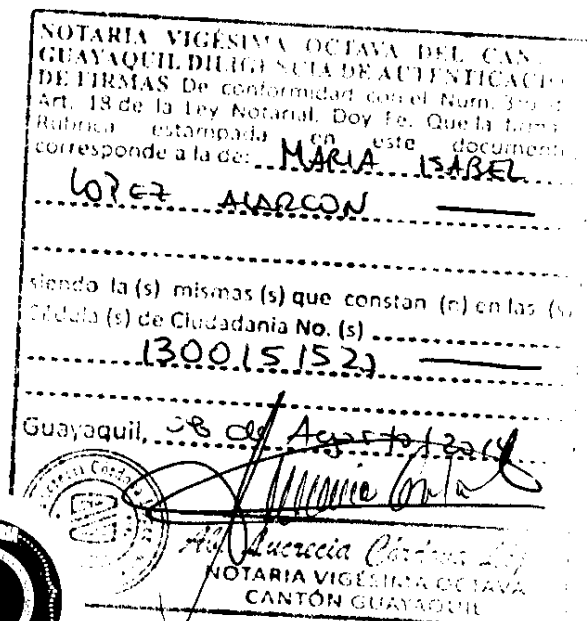 NOTARIA VIGÉSIMA OCTAVA DEL CAN
GUAYAQUIL DILIGENCIA DE AUTENTICACIO
DE FIRMAS De conformidad con el Num. 3ro d
Art. 18 de la Ley Notarial. Doy Fe. Que la firma
Rubrica estampada en este documento
corresponde a la de: MARIA ISABEL
LOPEZ ALARCON
siendo la (s) mismas (s) que constan (n) en las (s)
Cédula (s) de Ciudadania No. (s)
Guayaquil, 08 de Agosto / 2014
Ab. Lucrecia Córdova
NOTARIA VIGÉSIMA OCTAVA
CANTÓN GUAYAQUIL